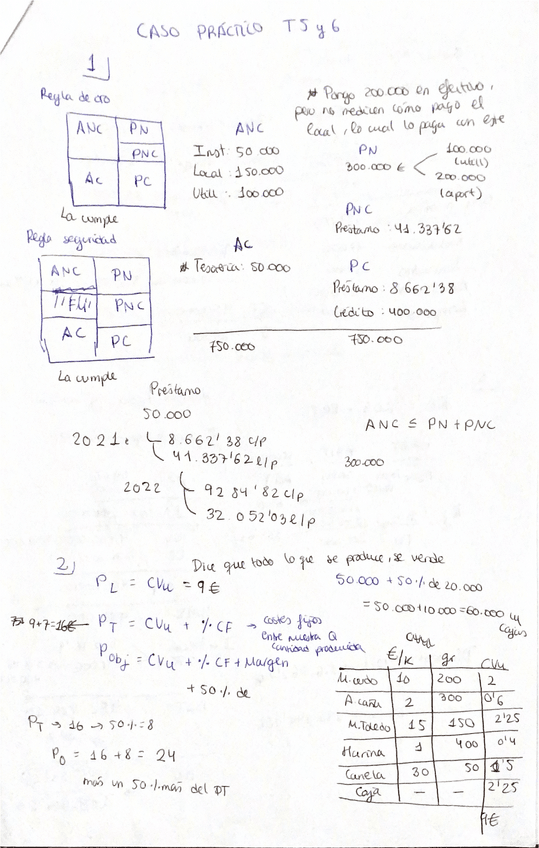 CASO PRÁCTICO T5 y 6
1
Regla de oro
ANC PN
PNC
AC PC
La cumple
ANC
Inst: 50.000
Local: 150.000
Utill: 100.000
* Pongo 200.000 en efectivo,
pero no me dicen cómo pago el
local, lo cual lo paga con este
PN
300.000 € 100.000
(utill)
200.000
(aport)
PNC
Préstamo: 41.337'62
Regla seguridad
ANC PN
PNC
AC PC
La cumple
AC
* Tesorería: 50.000
PC
Préstamo: 8.662'38
Crédito: 400.000
750.000 750.000
Préstamo
50.000
2021: 8.662'38 c/p
41.337'62 l/p
2022 9284'82 c/p
32.052'03 l/p
ANC ≤ PN + PNC
300.000
2
Dice que todo lo que se produce, se vende
PL = CVu = 9€
50.000 + 50% de 20.000
= 50.000 + 10.000 = 60.000
cajas
9+7=16€ PT = CVu + % CF → costes fijos
entre nuestra Q
cantidad producida
Pobj = CVu + % CF + Margen
+ 50% de
PT → 16 → 50% = 8
PO = 16 + 8 = 24
más un 50% más del PT
€/K gr CVu
M.cerdo 10 200 2
A.caña 2 300 0'6
M.Toledo 15 150 2'25
Harina 1 400 0'4
Canela 30 50 1'5
Caja — — 2'25
9€